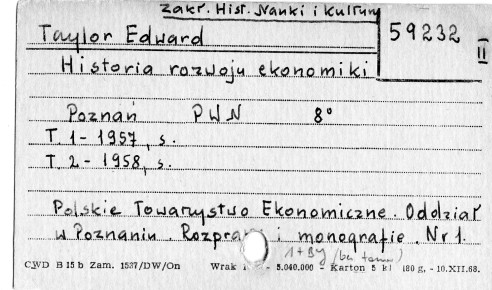 Zakł. Hist. Nauki i Kultury
Taylor Edward
59232
II
Historia rozwoju ekonomiki
Poznań PWN 8°
T. 1 - 1957, s.
T. 2 - 1958, s.
Polskie Towarzystwo Ekonomiczne. Oddział
w Poznaniu. Rozprawy i monografie. Nr 1.
CWD B 15 b Zam. 1537/DW/On Wrak - 5.040.000 - Karton 5 kl 180 g. - 10.XII.68.